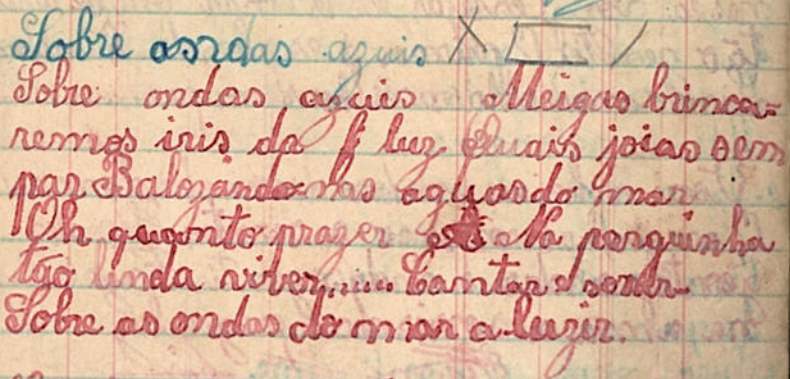 Sobre asroas azuis
Sobre ondas azuis Meigas brinca-
remos iris da luz Quais joias sem
par Balozando nas aguas do mar
Oh quanto prazer Na perguinha
tão linda viver...... Cantar e sorrir
Sobre as ondas do mar a luzir.